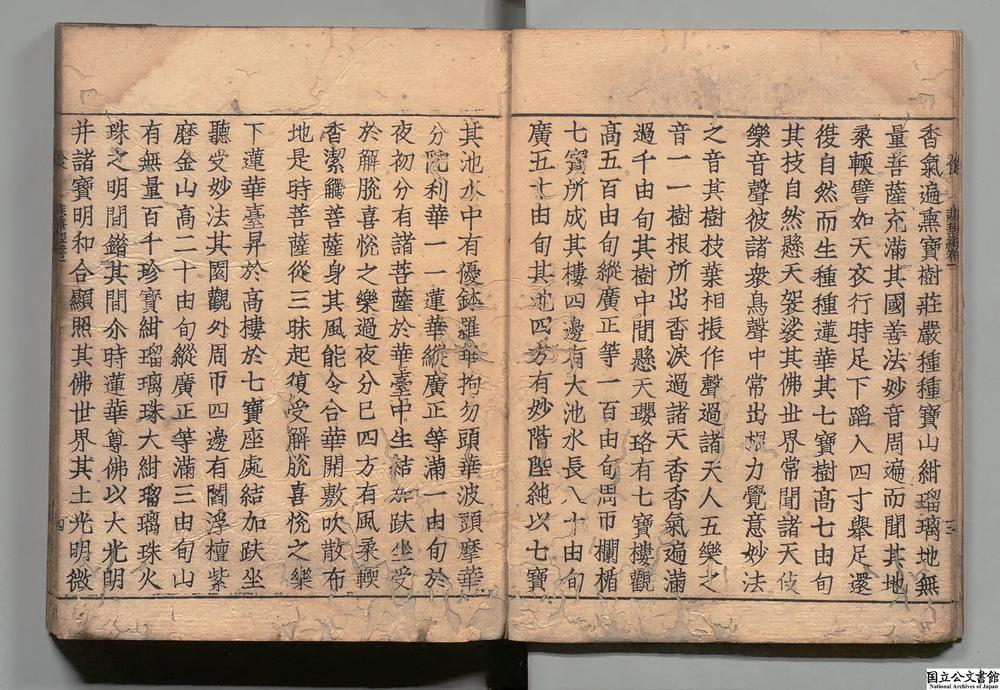 香氣遍熏寶樹莊嚴種種寶山紺瑠璃地無
量菩薩充滿其國善法妙音周遍而聞其地
柔輭譬如天衣行時足下蹈入四寸舉足還
復自然而生種種蓮華其七寶樹高七由旬
其枝自然懸天袈裟其佛世界常聞諸天伎
樂音聲彼諸衆鳥聲中常出根力覺意妙法
之音其樹枝葉相振作聲過諸天人五樂之
音一一樹根所出香氣過諸天香香氣遍滿
過千由旬其樹中間懸天瓔珞有七寶樓觀
高五百由旬縱廣正等一百由旬周帀欄楯
七寶所成其樓四邊有大池水長八十由旬
廣五十由旬其池四方有妙階陛純以七寶
其池水中有優鉢羅華拘勿頭華波頭摩華
分陀利華一一蓮華縱廣正等滿一由旬於
夜初分有諸菩薩於華臺中生結加趺坐受
於解脫喜悅之樂過夜分已四方有風柔輭
香潔觸菩薩身其風能令合華開敷吹散布
地是時菩薩從三昧起復受解脫喜悅之樂
下蓮華臺昇於高樓於七寶座處結加趺坐
聽受妙法其園觀外周帀四邊有閻浮檀紫
磨金山高二十由旬縱廣正等滿三由旬山
有無量百千珍寶紺瑠璃珠大紺瑠璃珠火
珠之明間錯其間尒時蓮華尊佛以大光明
幷諸寶明和合顯照其佛世界其土光明微
三
四
国立公文書館
National Archives of Japan